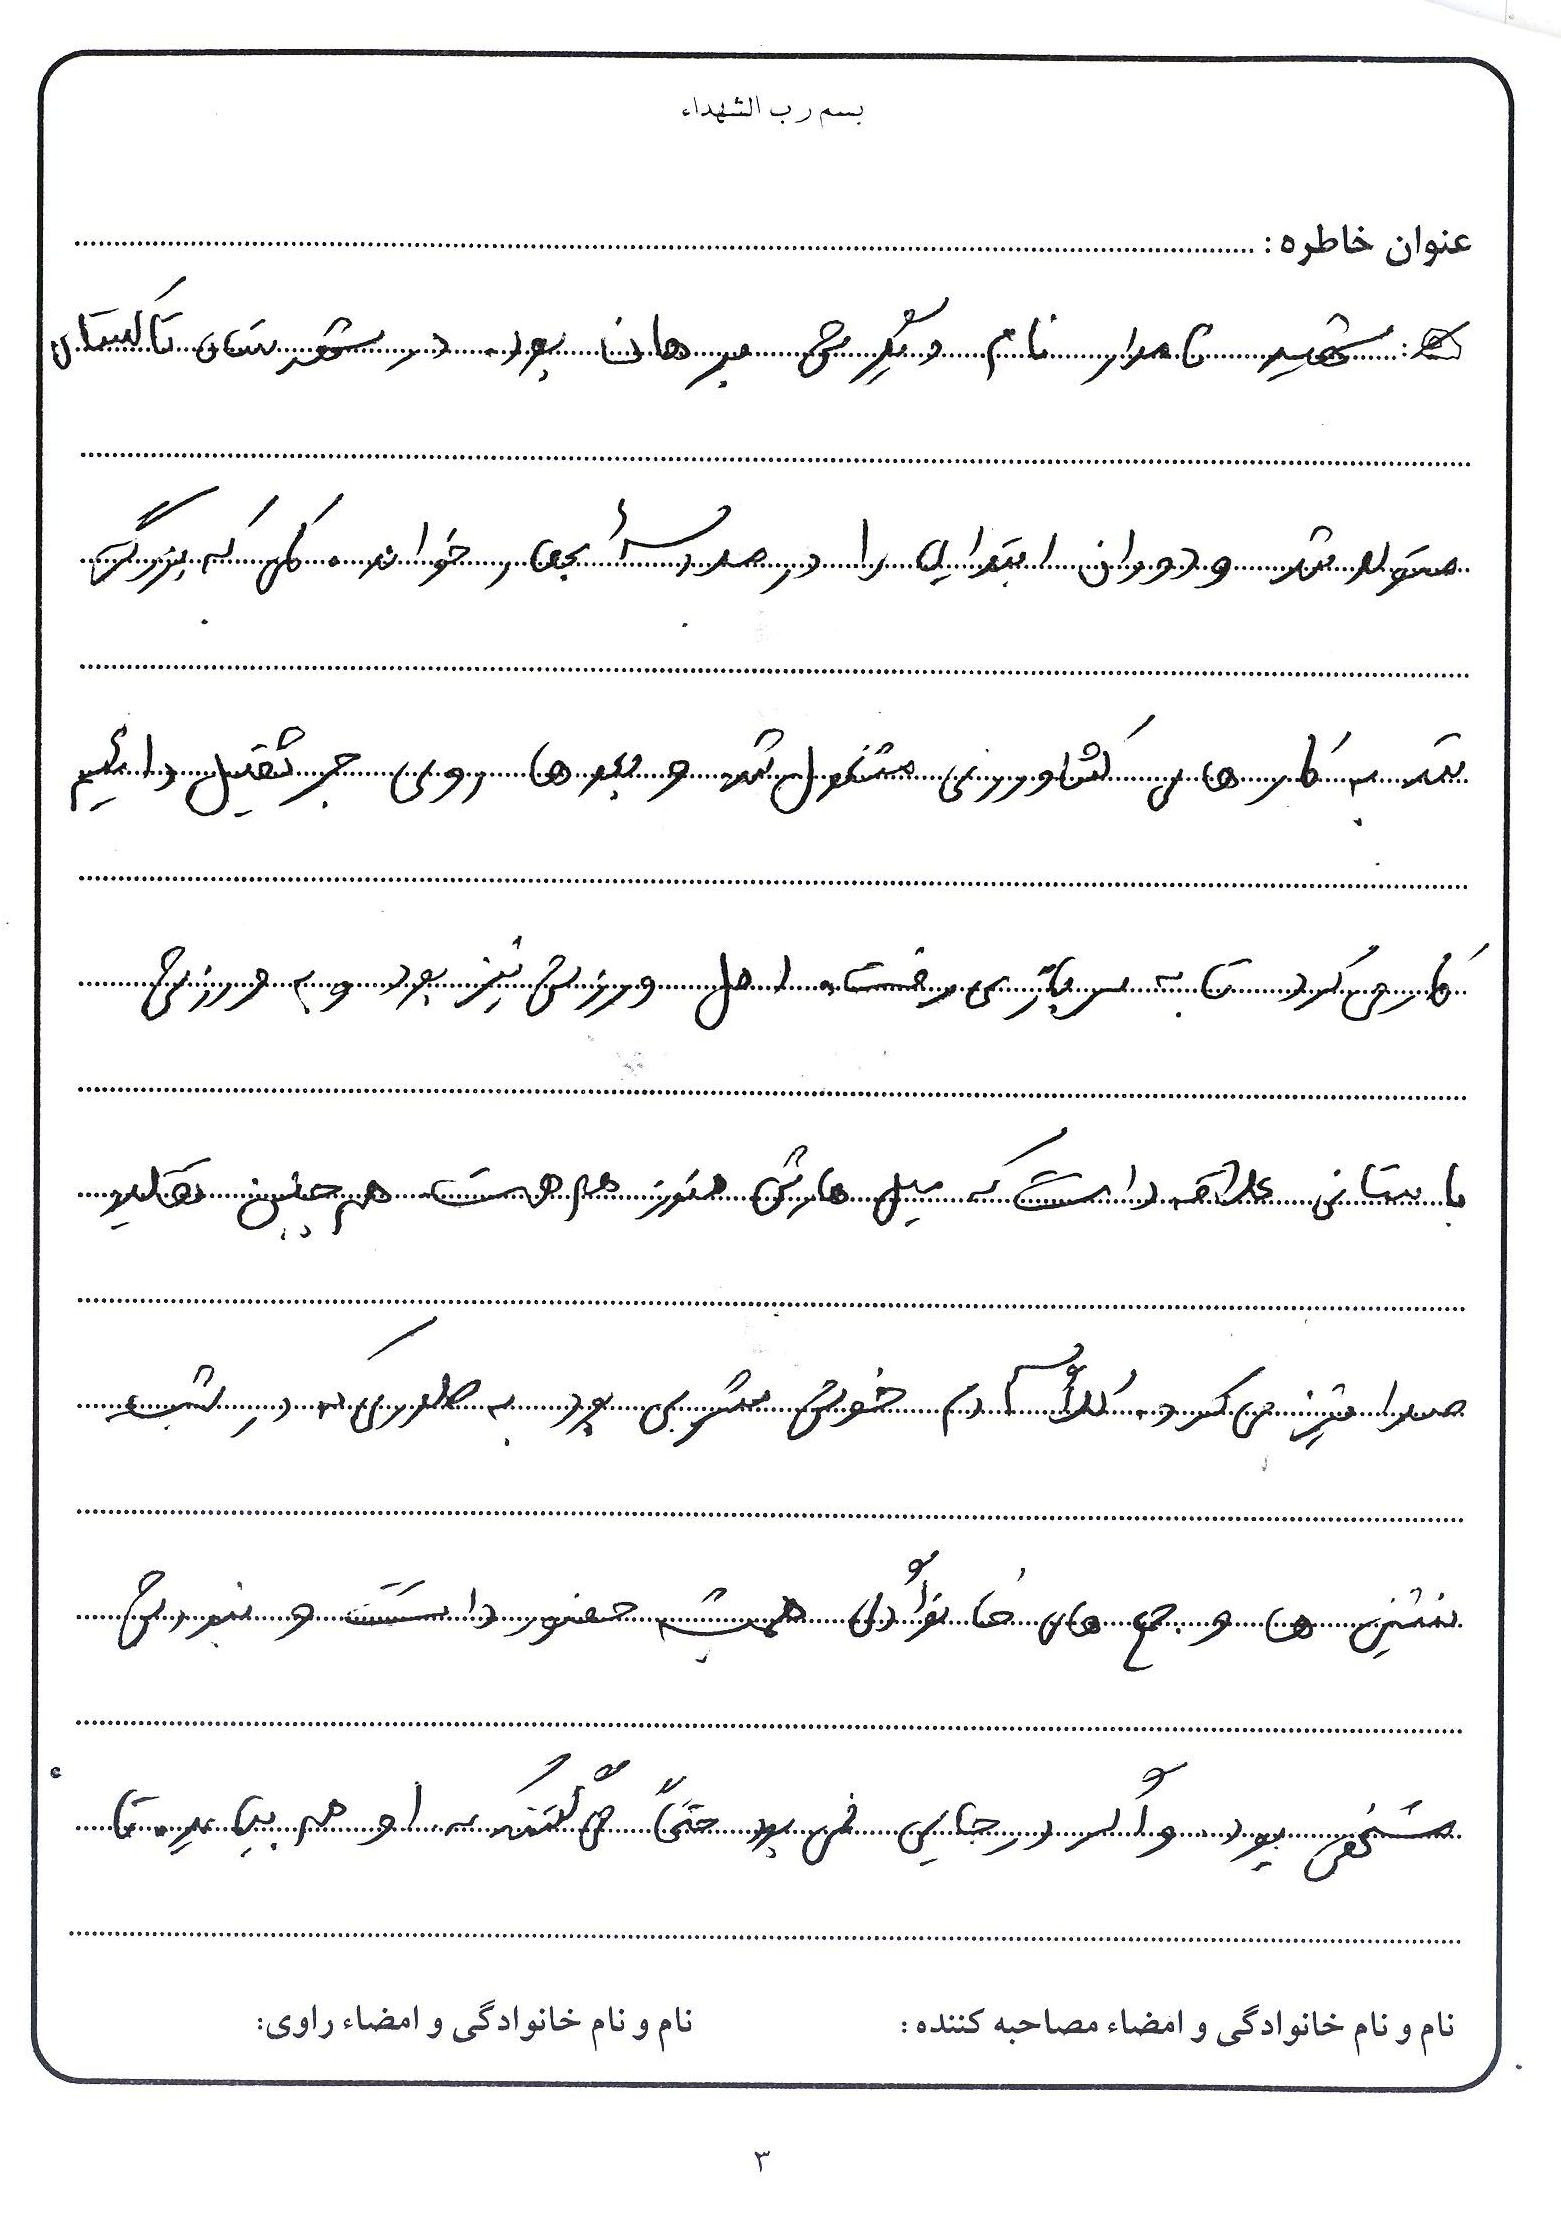 بسم رب الشهداء
عنوان خاطره :
شهید نامدار نام دیگرش برهان بود. در شهرستان تاکستان
متولد شد و دوران ابتدایی را در مدرسهٔ بهار خواند. کمی که بزرگ
شد به کارهای کشاورزی مشغول شد و بعدها روی جرثقیل دائیم
کار می کرد تا به سربازی رفت. اهل ورزش نیز بود و به ورزش
باستانی علاقه داشت که میل هایش هنوز هم هست هم چنین تقلید
صدا نیز می کرد. کلاً آدم خوش مشربی بود به طوری که در شب
نشینی ها و جمع های خانوادگی همیشه حضور داشت و نبودش
مشخص بود. و اگر در جایی نمی بود حتماً می گفتند که او هم بیاید. تا
نام و نام خانوادگی و امضاء مصاحبه کننده :
نام و نام خانوادگی و امضاء راوی:
۳